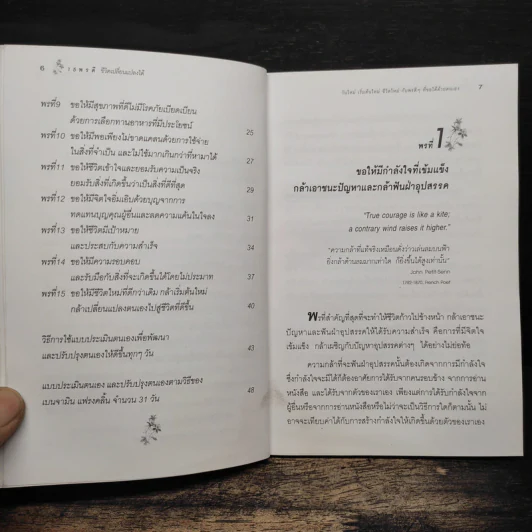 6 เ ธ พ ร ดี ชีวิตเปลี่ยนแปลงได้
พรที่9 ขอให้มีสุขภาพที่ดีไม่มีโรคภัยเบียดเบียน
ด้วยการเลือกทานอาหารที่มีประโยชน์ 25
พรที่10 ขอให้มีพอเพียงไม่ขาดแคลนด้วยการใช้จ่าย
ในสิ่งที่จำเป็น และไม่ใช้มากเกินกว่าที่หามาได้ 27
พรที่11 ขอให้ชีวิตเข้าใจและยอมรับความเป็นจริง
ยอมรับสิ่งที่เกิดขึ้นว่าเป็นสิ่งที่ดีที่สุด 29
พรที่12 ขอให้มีจิตใจอิ่มเอิบด้วยบุญจากการ
ทดแทนบุญคุณผู้อื่นและลดความแค้นในใจลง 31
พรที่13 ขอให้ชีวิตมีเป้าหมาย
และประสบกับความสำเร็จ 34
พรที่14 ขอให้มีความรอบคอบ
และรับมือกับสิ่งที่จะเกิดขึ้นได้โดยไม่ประมาท 37
พรที่15 ขอให้มีชีวิตใหม่ที่ดีกว่าเดิม กล้าเริ่มต้นใหม่
กล้าเปลี่ยนแปลงตนเองไปสู่ชีวิตที่ดีขึ้น 40
วิธีการใช้แบบประเมินตนเองเพื่อพัฒนา
และปรับปรุงตนเองให้ดีขึ้นทุกๆ วัน 43
แบบประเมินตนเอง และปรับปรุงตนเองตามวิธีของ
เบนจามิน แฟรงคลิ้น จำนวน 31 วัน 48
7
พรที่ 1
ขอให้มีกำลังใจที่เข้มแข็ง
กล้าเอาชนะปัญหาและกล้าฟันฝ่าอุปสรรค
"True courage is like a kite;
a contrary wind raises it higher."
"ความกล้าที่แท้จริงเหมือนดั่งว่าวเล่นลมบนฟ้า
ยิ่งกล้าต้านลมมากเท่าใด ก็ยิ่งขึ้นได้สูงเท่านั้น"
John. Petit-Senn
1792-1870, French Poet
พรที่สำคัญที่สุดที่จะทำให้ชีวิตก้าวไปข้างหน้า กล้าเอาชนะ
ปัญหาและฟันฝ่าอุปสรรคให้ได้รับความสำเร็จ คือการที่มีจิตใจ
เข้มแข็ง กล้าเผชิญกับปัญหาอุปสรรคต่างๆ ได้อย่างไม่ย่อท้อ
ความกล้าที่จะฟันฝ่าอุปสรรคนั้นต้องเกิดจากการมีกำลังใจ
ซึ่งกำลังใจจะมีได้ก็ต้องอาศัยการได้รับจากคนรอบข้าง จากการอ่าน
หนังสือ และได้รับจากตัวของเราเอง เพียงแต่การได้รับกำลังใจจาก
ผู้อื่นหรือจากการอ่านหนังสือหรือไม่ว่าจะเป็นวิธีการใดก็ตามนั้น ไม่
อาจจะเทียบค่าได้กับการสร้างกำลังใจให้เกิดขึ้นด้วยตัวของเราเอง